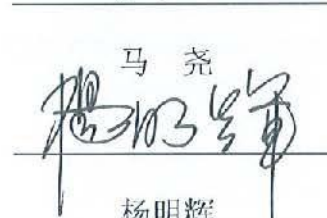 马 尧
杨明辉
杨明辉